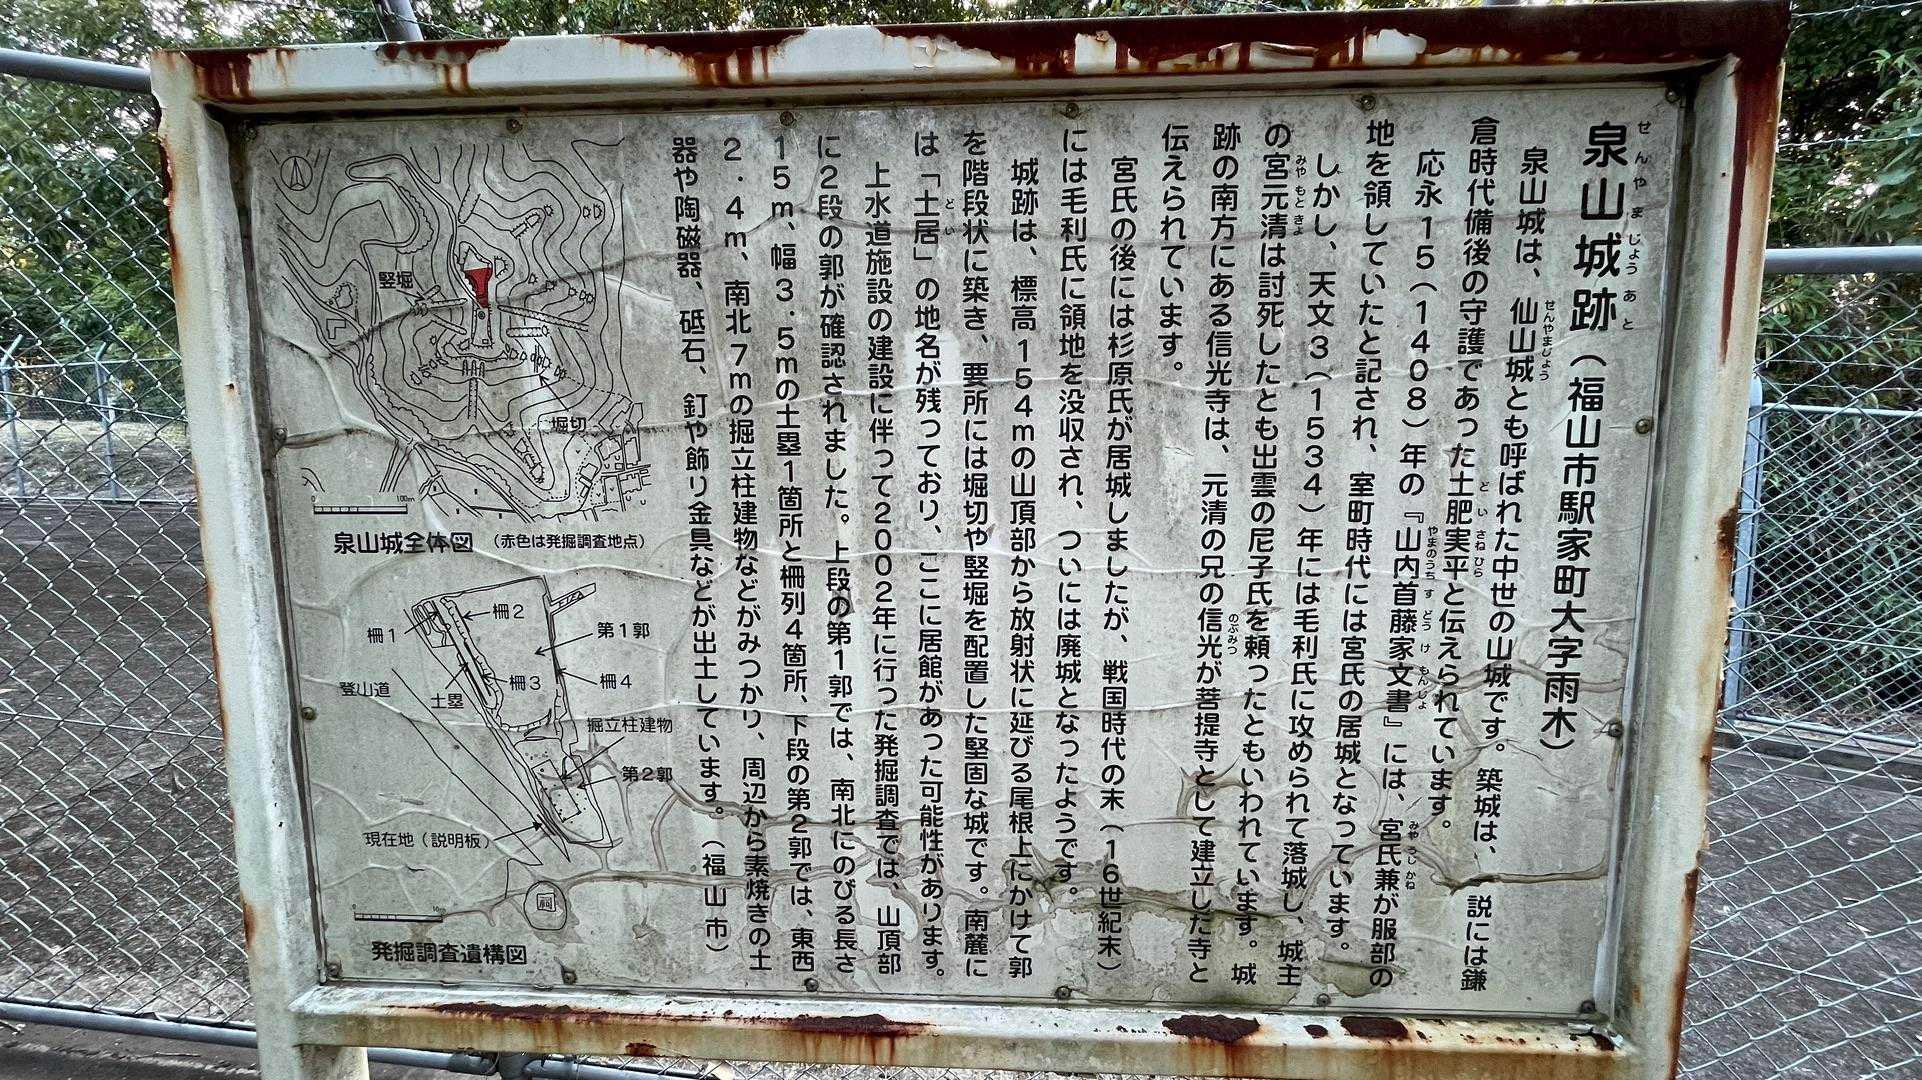 泉山城跡（福山市駅家町大字雨木）
せんやまじょうあと
泉山城は、仙山城とも呼ばれた中世の山城です。築城は、説には鎌
せんやまじょう
倉時代備後の守護であった土肥実平と伝えられています。
どいさねひら
応永15（1408）年の『山内首藤家文書』には、宮氏兼が服部の
やまのうちすどうけもんじょ
みやうじかね
地を領していたと記され、室町時代には宮氏の居城となっています。
しかし、天文3（1534）年には毛利氏に攻められて落城し、城主
の宮元清は討死したとも出雲の尼子氏を頼ったともいわれています。城
みやもときよ
跡の南方にある信光寺は、元清の兄の信光が菩提寺として建立した寺と
のぶみつ
伝えられています。
宮氏の後には杉原氏が居城しましたが、戦国時代の末（16世紀末）
には毛利氏に領地を没収され、ついには廃城となったようです。
城跡は、標高154mの山頂部から放射状に延びる尾根上にかけて郭
を階段状に築き、要所には堀切や竪堀を配置した堅固な城です。南麓に
は「土居」の地名が残っており、ここに居館があった可能性があります。
どい
上水道施設の建設に伴って2002年に行った発掘調査では、山頂部
に2段の郭が確認されました。上段の第1郭では、南北にのびる長さ
15m、幅3.5mの土塁1箇所と柵列4箇所、下段の第2郭では、東西
2.4m、南北7mの掘立柱建物などがみつかり、周辺から素焼きの土
器や陶磁器、砥石、釘や飾り金具などが出土しています。（福山市）
竪堀
堀切
0 100m
泉山城全体図（赤色は発掘調査地点）
柵2
柵1
第1郭
柵3
柵4
登山道
土塁
掘立柱建物
第2郭
現在地（説明板）
祠
0 10m
発掘調査遺構図